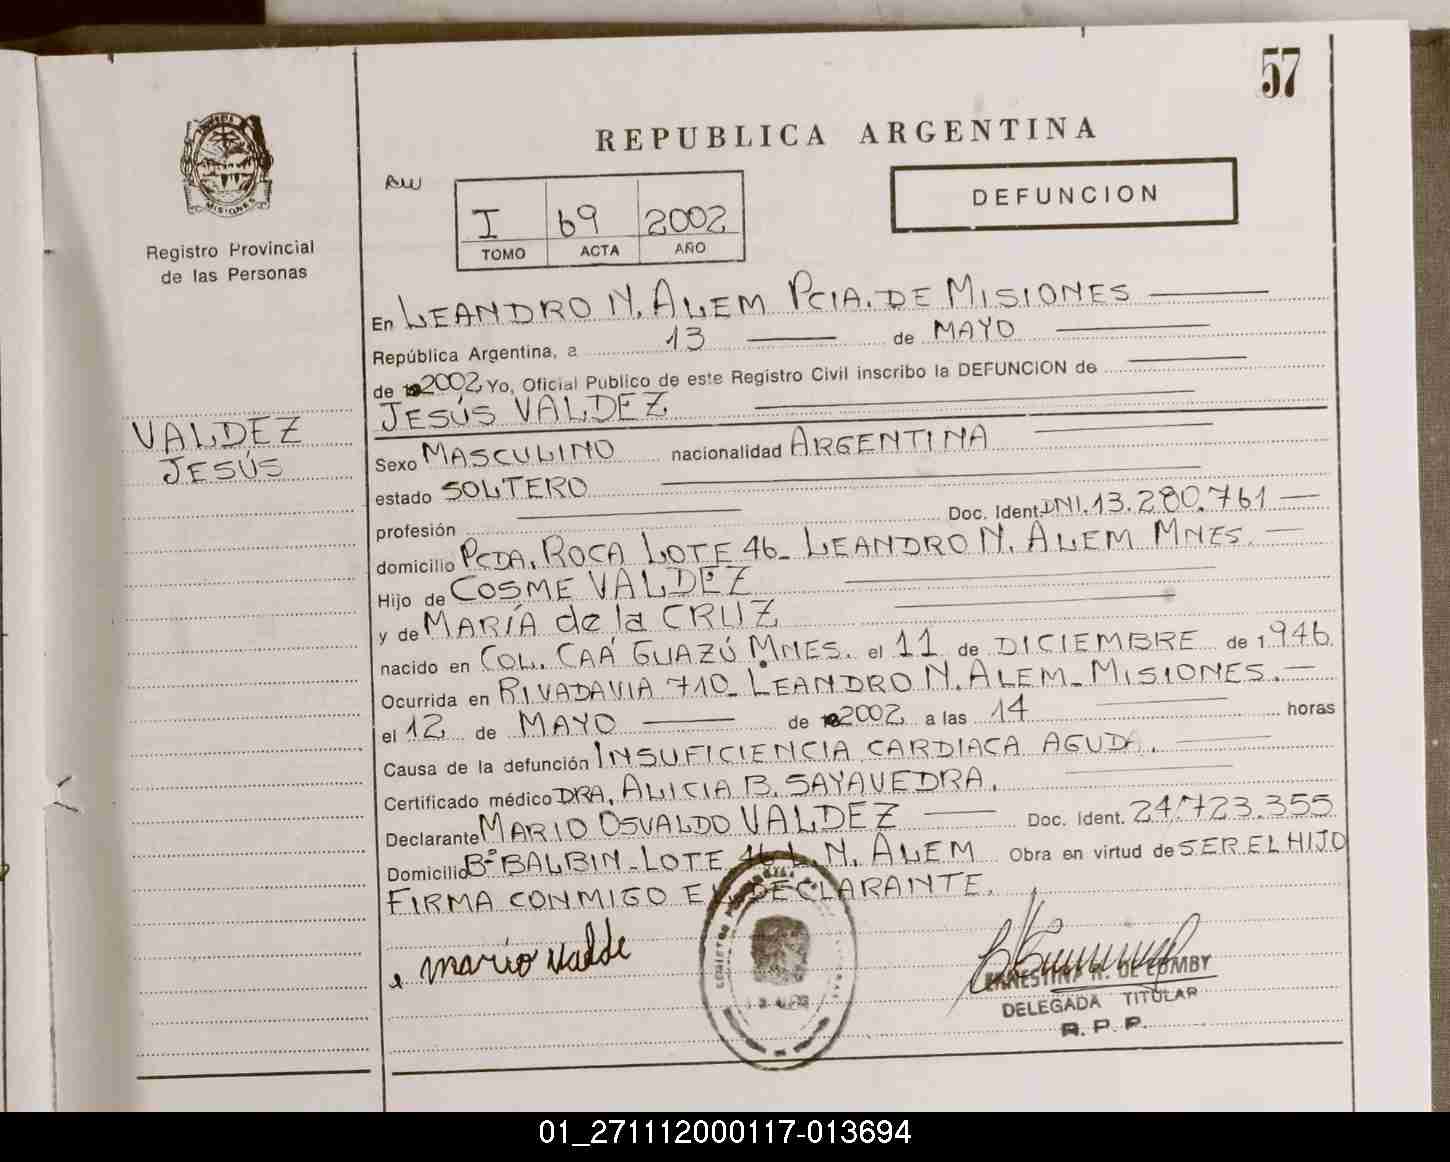 57
REPUBLICA ARGENTINA
MISIONES
Registro Provincial
de las Personas
I 69 2002
TOMO ACTA AÑO
DEFUNCION
VALDEZ
JESÚS
En LEANDRO N. ALEM PCIA. DE MISIONES
República Argentina, a 13 de MAYO
de 2002 Yo, Oficial Publico de este Registro Civil inscribo la DEFUNCION de
JESÚS VALDEZ
Sexo MASCULINO nacionalidad ARGENTINA
estado SOLTERO
profesión Doc. Ident. DNI. 13.280.761
domicilio PCDA. ROCA LOTE 46_ LEANDRO N. ALEM MNES.
Hijo de COSME VALDEZ
y de MARÍA de la CRUZ
nacido en COL. CAÁ GUAZÚ MNES. el 11 de DICIEMBRE de 1.946.
Ocurrida en RIVADAVIA 710_ LEANDRO N. ALEM_ MISIONES.
el 12 de MAYO de 2002 a las 14 horas
Causa de la defunción INSUFICIENCIA CARDIACA AGUDA.
Certificado médico DRA. ALICIA B. SAYAVEDRA.
Declarante MARIO OSVALDO VALDEZ Doc. Ident. 24.723.355
Domicilio Bº BALBIN_ LOTE 46 L. N. ALEM Obra en virtud de SER EL HIJO
FIRMA CONMIGO EL DECLARANTE.
mario valde
ERNESTINA R. DE LOMBY
DELEGADA TITULAR
R. P. P.
01_271112000117-013694